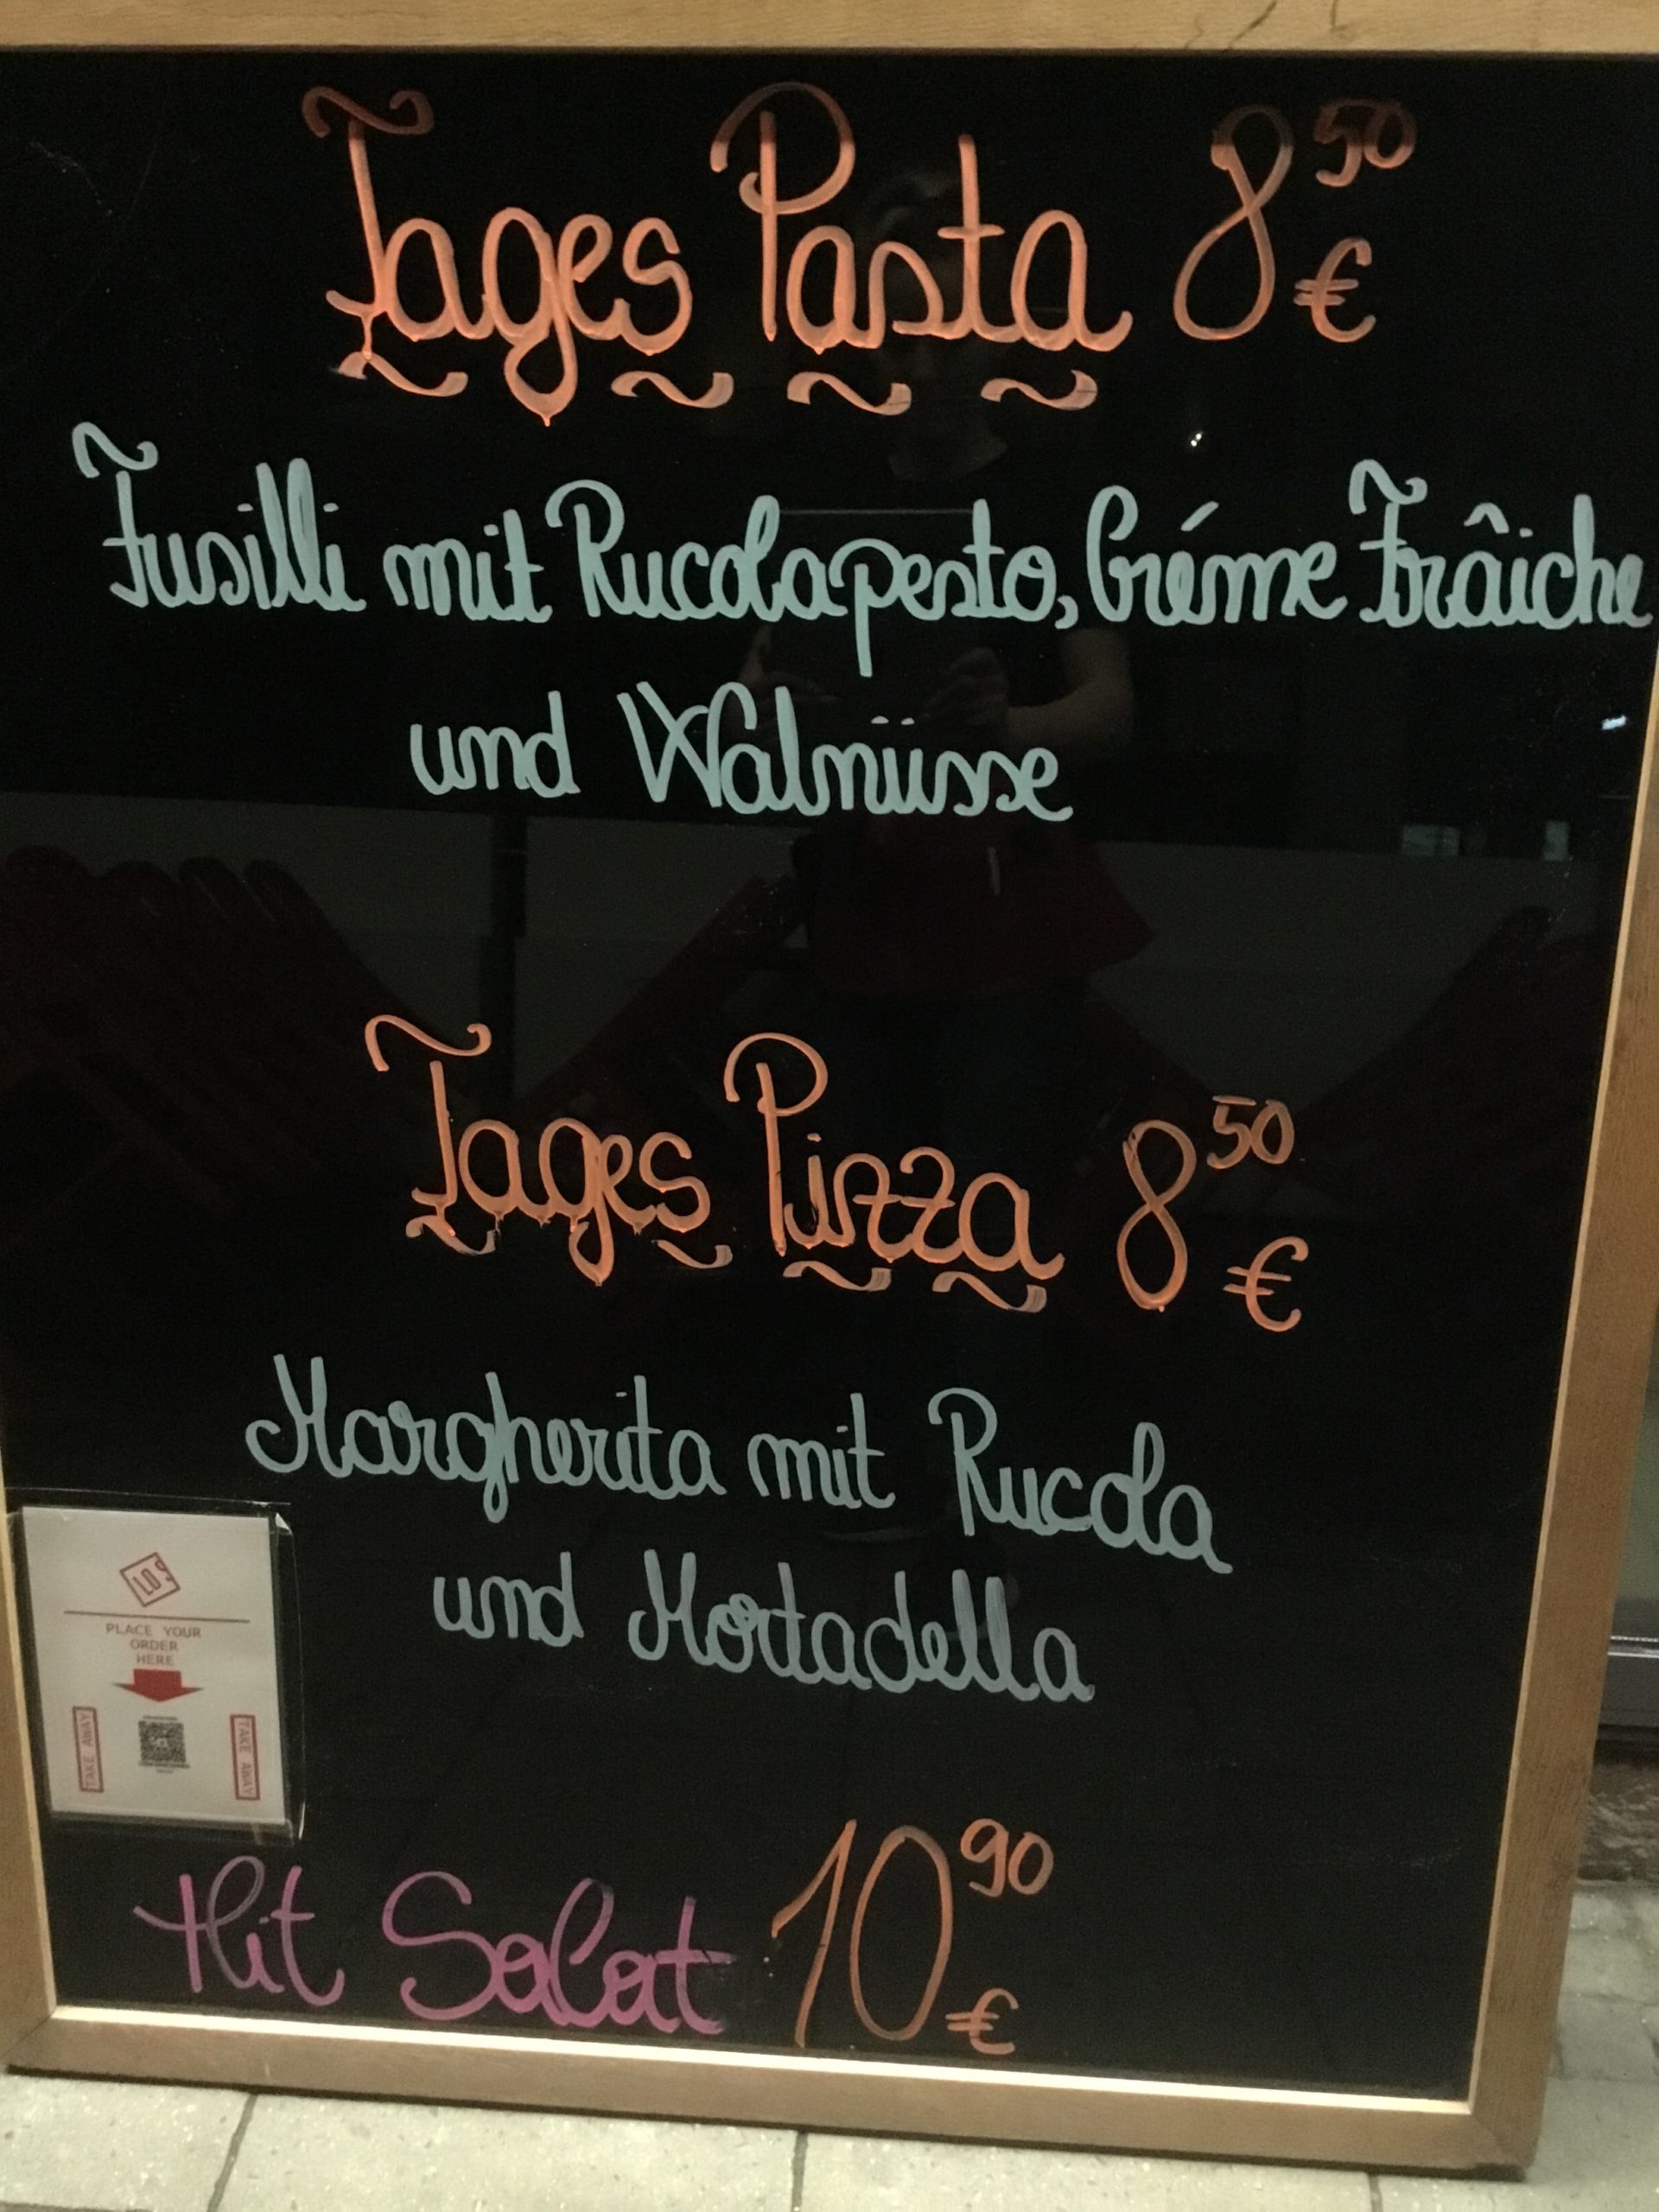 Tages Pasta 8 50 €
Fusilli mit Rucolapesto, Créme Frâiche
und Walnüsse
Tages Pizza 8 50 €
Margherita mit Rucola
und Mortadella
PLACE YOUR
ORDER
HERE
TAKE AWAY
TAKE AWAY
Hit Salat 10 90 €